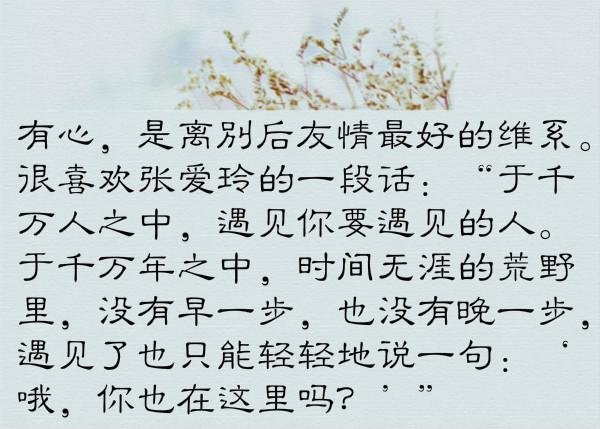 有心，是离别后友情最好的维系。
很喜欢张爱玲的一段话：“于千
万人之中，遇见你要遇见的人。
于千万年之中，时间无涯的荒野
里，没有早一步，也没有晚一步，
遇见了也只能轻轻地说一句：‘
哦，你也在这里吗？’”